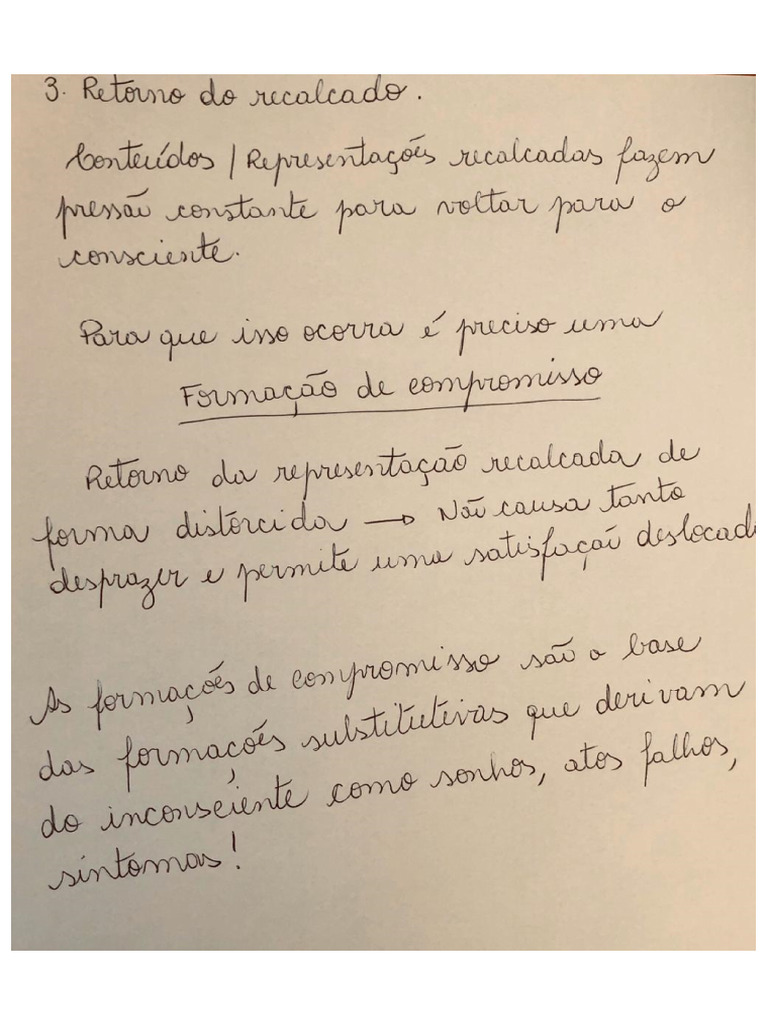 3. Retorno do recalcado.
Conteúdos / Representações recalcadas fazem
pressão constante para voltar para o
consciente.
Para que isso ocorra é preciso uma
Formação de compromisso
Retorno da representação recalcada de
forma distorcida → Não causa tanto
desprazer e permite uma satisfação deslocad
As formações de compromisso são a base
das formações substitutivas que derivam
do inconsciente como sonhos, atos falhos,
sintomas!